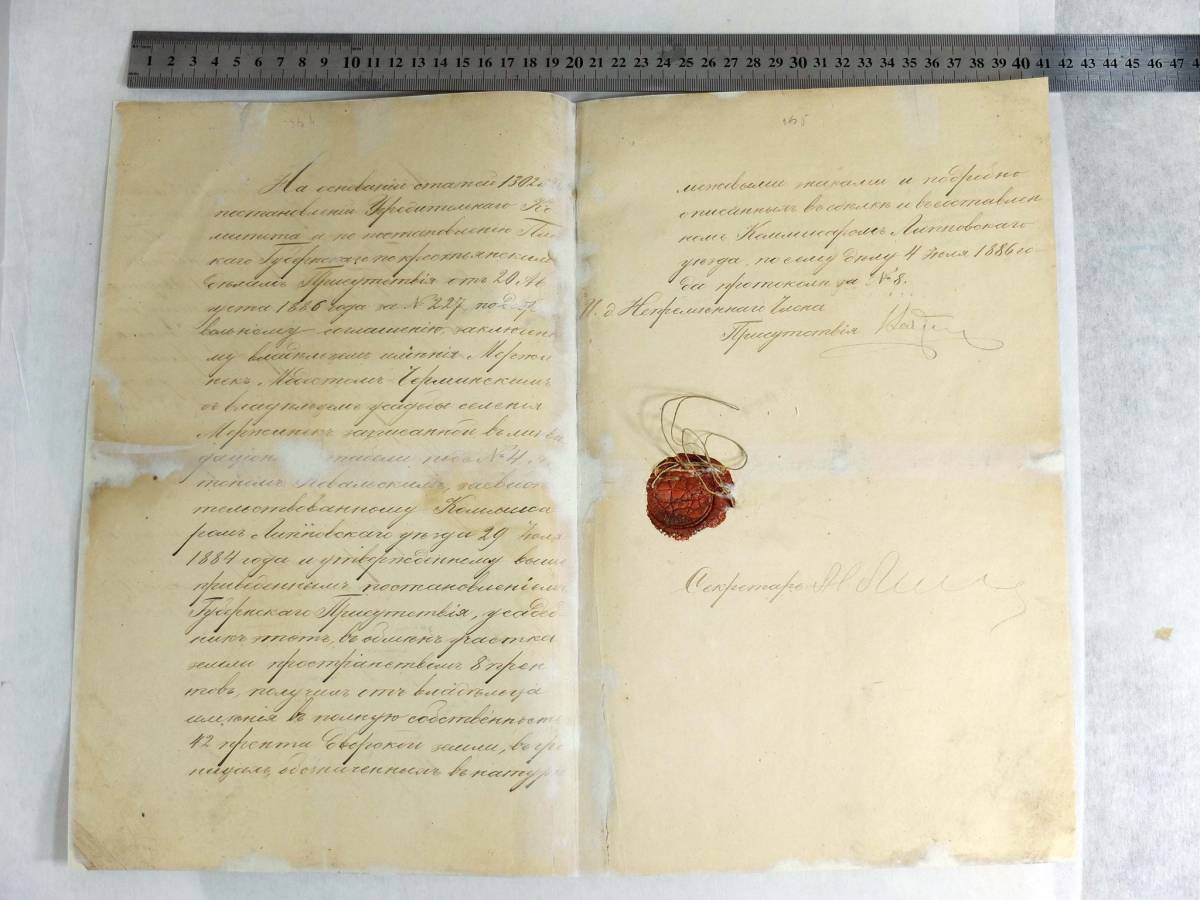 1 2 3 4 5 6 7 8 9 10 11 12 13 14 15 16 17 18 19 20 21 22 23 24 25 26 27 28 29 30 31 32 33 34 35 36 37 38 39 40 41 42 43 44 45 46 47
На основаніи статей 1302
постановленія Учредительнаго Ко
митета и по постановленію Плоц
каго Губернскаго по крестьянскимъ
дѣламъ Присутствія отъ 20 Ав
густа 1886 года за № 227, по добро
вольному соглашенію, заключенно
му владѣльцемъ имѣнія
Чорминскимъ
съ владѣльцемъ усадьбы селенія
записанной въ ликви
даціон табели подъ № 4
Ковальскимъ, засвидѣ
тельствованному Коммиса
ромъ Липновскаго уѣзда 29 Іюля
1884 года и утвержденному выше
приведеннымъ постановленіемъ
Губернскаго Присутствія, усадеб
никъ этотъ, въ обмѣнъ участка
земли пространствомъ 8 прен
товъ, получилъ отъ владѣльца
имѣнія въ полную собственность
42 прента дворской земли, въ гра
ницахъ, обозначенныхъ въ натурѣ
165
межевыми знаками и подробно
описанныхъ въ и въ составлен
номъ Коммисаромъ Липновскаго
уѣзда, по сему дѣлу 4 Іюля 1886 го
да протоколѣ за № 8.
И. д. Непремѣннаго Члена
Присутствія
Секретарь